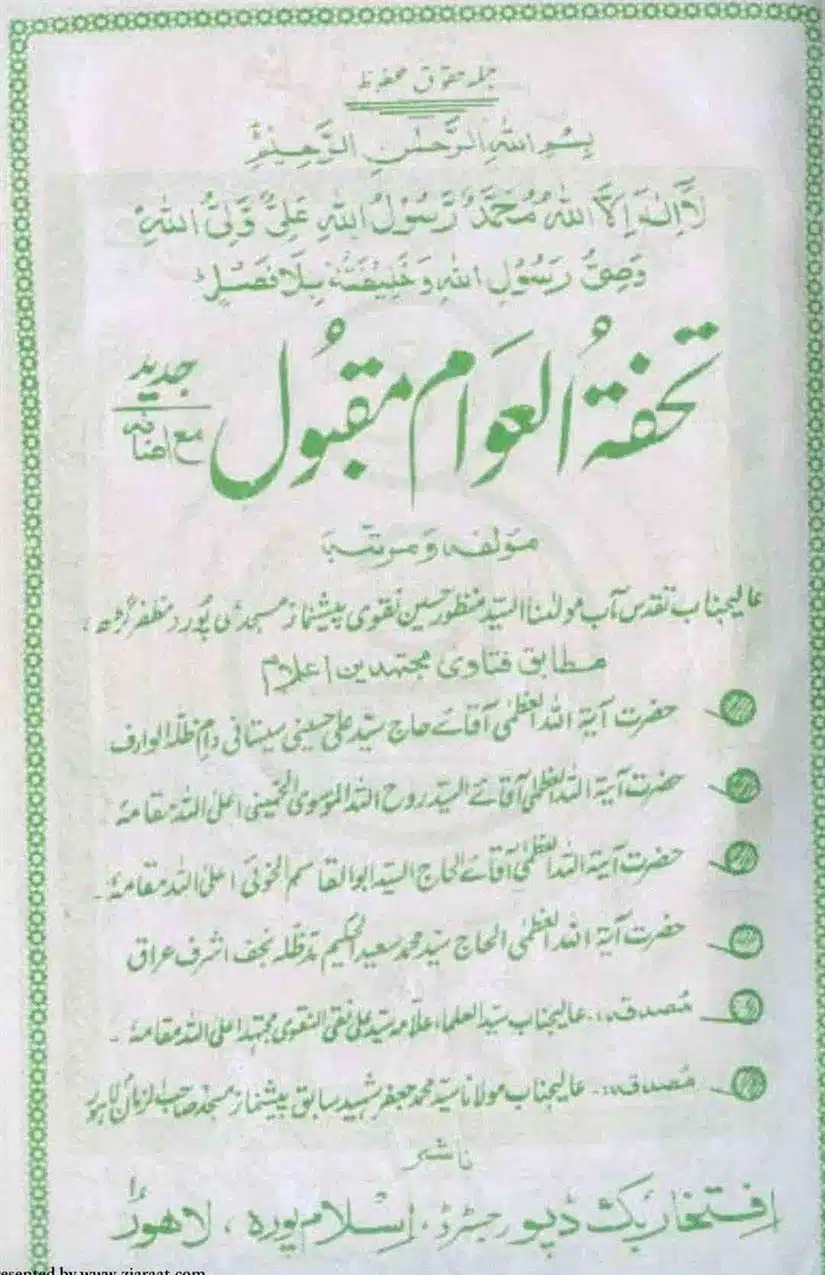 جملہ حقوق محفوظ
بِسْمِ اللهِ الرَّحْمٰنِ الرَّحِيْمِ
لَا اِلٰهَ اِلَّا اللهُ مُحَمَّدٌ رَّسُوْلُ اللهِ عَلِیٌّ وَّلِیُّ اللهِ
وَصِیُّ رَسُوْلِ اللهِ وَخَلِيْفَتُهٗ بِلَا فَصْلٍ
تحفۃُ العوام مقبُول جدید
مع اضافہ
مولفہ و مرتبہ
عالیجناب تقدس مآب مولٰنا السیّد منظور حسین نقوی پیشنماز مسجد پور مظفر گڑھ
مطابق فتاویٰ مجتہدین اعلام
حضرت آیۃ اللہ العظمٰی آقائے حاج سیّد علی حسینی سیستانی دام ظلہ الوارف
حضرت آیۃ اللہ العظمٰی آقائے السیّد روح اللہ الموسوی الخمینی اعلی اللہ مقامہٗ
حضرت آیۃ اللہ العظمٰی آقائے الحاج السیّد ابوالقاسم الخوئی اعلی اللہ مقامہٗ۔
حضرت آیۃ اللہ العظمٰی الحاج سیّد محمد سعید الحکیم مدظلہ نجف اشرف عراق
مُصدقہ:۔ عالیجناب سیّد العلماء علّامہ سیّد علی نقی النقوی مجتہد اعلی اللہ مقامہٗ۔
مُصدقہ:۔ عالیجناب مولانا سیّد محمد جعفر شہید سابق پیشنماز مسجد صاحب الزمانؑ لاہور
ناشر
افتخار بک ڈپو رجسٹرڈ، اسلام پورہ، لاہور
resented by www.ziaraat.com